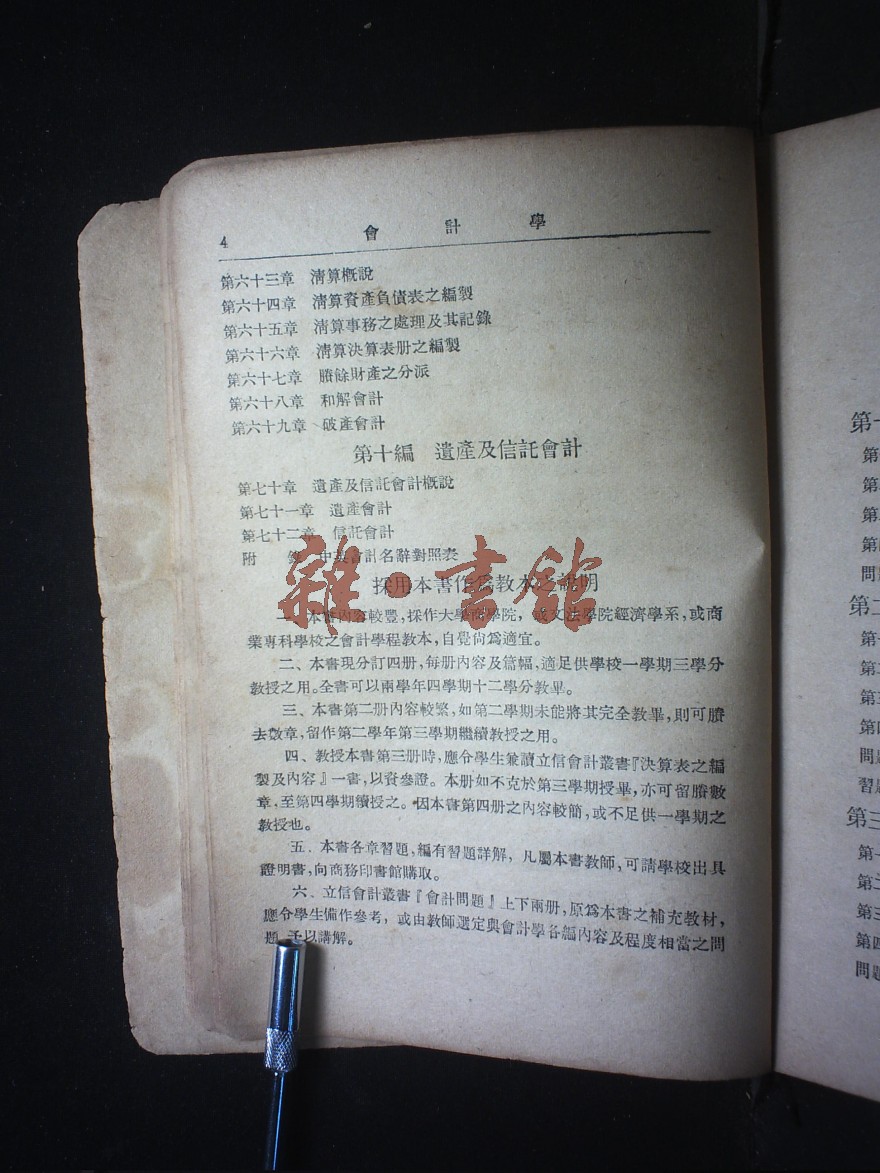 4 會計學
第六十三章 清算概說
第六十四章 清算資產負債表之編製
第六十五章 清算事務之處理及其記錄
第六十六章 清算決算表册之編製
第六十七章 賸餘財產之分派
第六十八章 和解會計
第六十九章 破產會計
第十編 遺產及信託會計
第七十章 遺產及信託會計概說
第七十一章 遺產會計
第七十二章 信託會計
附錄 中英會計名辭對照表
雜·書館
採用本書作爲教本之說明
一、本書內容較豐,採作大學商學院,或文法學院經濟學系,或商
業專科學校之會計學程教本,自覺尙爲適宜。
二、本書現分訂四册,每册內容及篇幅,適足供學校一學期三學分
教授之用。全書可以兩學年四學期十二學分教畢。
三、本書第二册內容較繁,如第二學期未能將其完全教畢,則可賸
去數章,留作第二學年第三學期繼續教授之用。
四、教授本書第三册時,應令學生兼讀立信會計叢書『決算表之編
製及內容』一書,以資參證。本册如不克於第三學期授畢,亦可留賸數
章,至第四學期續授之。因本書第四册之內容較簡,或不足供一學期之
教授也。
五、本書各章習題,編有習題詳解,凡屬本書教師,可請學校出具
證明書,向商務印書館購取。
六、立信會計叢書『會計問題』上下兩册,原爲本書之補充教材,
應令學生備作參考,或由教師選定與會計學各編內容及程度相當之問
題 予以講解。
第
第
第
第
問
第二
第
第
第
第四
問題
習題
第三
第
第
第
第四
問題